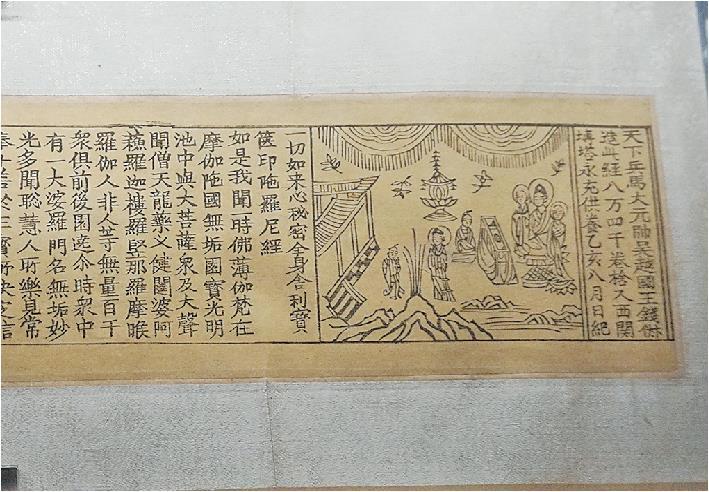 天下兵馬大元帥吳越國王錢俶
造此經八万四千卷捨入西關
塼塔永充供養乙亥八月日紀
一切如来心秘密全身舍利寳
篋印陁羅尼經
如是我聞一時佛薄伽梵在
摩伽陁國無垢園寶光明
池中與大菩薩衆及大聲
聞僧天龍藥叉健闥婆阿
蘓羅迦樓羅堅那羅摩睺
羅伽人非人等無量百千
衆俱前後圍遶尒時衆中
有一大婆羅門名無垢妙
光多聞聡慧人所樂見常
奉十善於三寳所決定信